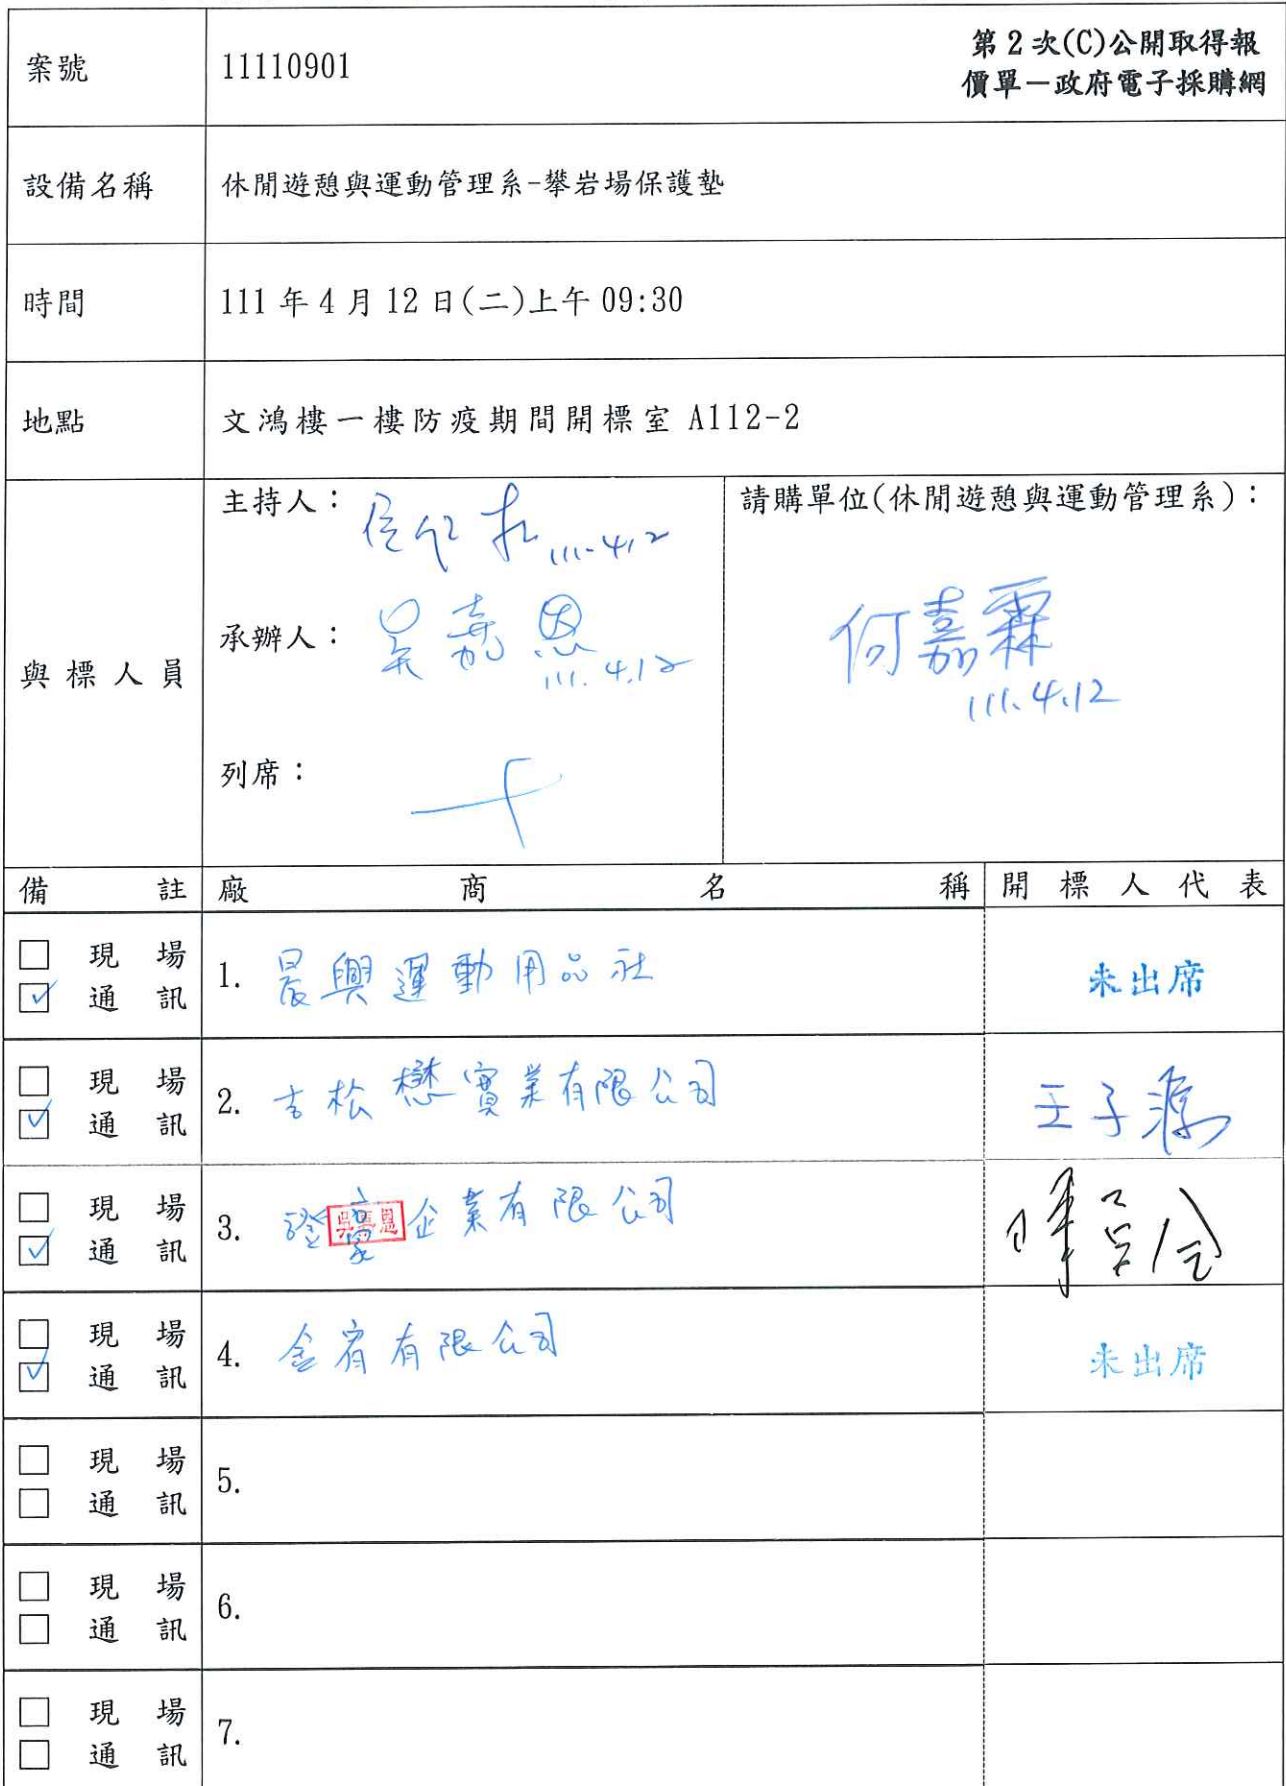 案號 11110901 第2次(C)公開取得報
價單－政府電子採購網
設備名稱 休閒遊憩與運動管理系-攀岩場保護墊
時間 111年4月12日(二)上午09:30
地點 文鴻樓一樓防疫期間開標室 A112-2
與標人員
主持人： 111.4.12
承辦人： 吳嘉恩
111.4.12
列席：
請購單位(休閒遊憩與運動管理系)：
何嘉霖
111.4.12
備註 廠商名稱 開標人代表
□ 現場
☑ 通訊
1. 晨興運動用品社 未出席
□ 現場
☑ 通訊
2. 吉松懋實業有限公司 王子源
□ 現場
☑ 通訊
3. 企業有限公司
吳嘉恩
□ 現場
☑ 通訊
4. 金宥有限公司 未出席
□ 現場
□ 通訊
5.
□ 現場
□ 通訊
6.
□ 現場
□ 通訊
7.